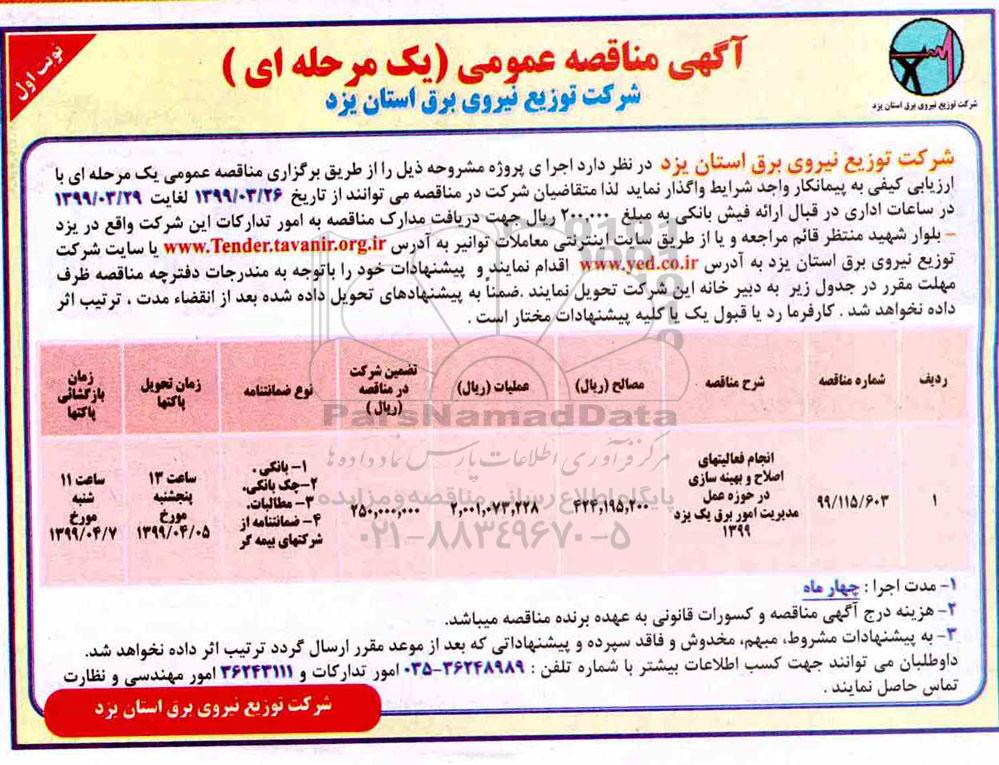 نوبت اول
آگهی مناقصه عمومی (یک مرحله ای )
شرکت توزیع نیروی برق استان یزد
شرکت توزیع نیروی برق استان یزد
شرکت توزیع نیروی برق استان یزد در نظر دارد اجرا ی پروژه مشروحه ذیل را از طریق برگزاری مناقصه عمومی یک مرحله ای با
ارزیابی کیفی به پیمانکار واجد شرایط واگذار نماید لذا متقاضیان شرکت در مناقصه می توانند از تاریخ ۱۳۹۹/۰۳/۲۶ لغایت ۱۳۹۹/۰۳/۲۹
در ساعات اداری در قبال ارائه فیش بانکی به مبلغ ۲۰۰,۰۰۰ ریال جهت دریافت مدارک مناقصه به امور تدارکات این شرکت واقع در یزد
– بلوار شهید منتظر قائم مراجعه و یا از طریق سایت اینترنتی معاملات توانیر به آدرس www.Tender.tavanir.org.ir یا سایت شرکت
توزیع نیروی برق استان یزد به آدرس www.yed.co.ir اقدام نمایند و پیشنهادات خود را باتوجه به مندرجات دفترچه مناقصه ظرف
مهلت مقرر در جدول زیر به دبیر خانه این شرکت تحویل نمایند .ضمناً به پیشنهادهای تحویل داده شده بعد از انقضاء مدت ، ترتیب اثر
داده نخواهد شد . کارفرما رد یا قبول یک یا کلیه پیشنهادات مختار است .
ردیف
شماره مناقصه
شرح مناقصه
مصالح (ریال)
عملیات (ریال)
تضمین شرکت
در مناقصه
(ریال)
نوع ضمانتنامه
زمان تحویل
پاکتها
زمان
بازگشائی
پاکتها
۱
۹۹/۱۱۵/۶۰۳
انجام فعالیتهای
اصلاح و بهینه سازی
در حوزه عمل
مدیریت امور برق یک یزد
۱۳۹۹
۴۲۴,۱۹۵,۲۰۰
۲,۰۰۱,۰۷۳,۲۲۸
۲۵۰,۰۰۰,۰۰۰
۱– بانکی .
۲–چک بانکی.
۳– مطالبات.
۴– ضمانتنامه از
شرکتهای بیمه گر
ساعت ۱۳
پنجشنبه
مورخ
۱۳۹۹/۰۴/۰۵
ساعت ۱۱
شنبه
مورخ
۱۳۹۹/۰۴/۷
ParsNamadData
مرکز فرآوری اطلاعات پارس نماد داده ها
پایگاه اطلاع رسانی مناقصه و مزایده
۰۲۱-۸۸۳۴۹۶۷۰-۵
۱– مدت اجرا : چهار ماه
۲– هزینه درج آگهی مناقصه و کسورات قانونی به عهده برنده مناقصه میباشد.
۳– به پیشنهادات مشروط، مبهم، مخدوش و فاقد سپرده و پیشنهاداتی که بعد از موعد مقرر ارسال گردد ترتیب اثر داده نخواهد شد.
داوطلبان می توانند جهت کسب اطلاعات بیشتر با شماره تلفن : ۳۶۲۴۸۹۸۹–۰۳۵ امور تدارکات و ۳۶۲۴۳۱۱۱ امور مهندسی و نظارت
تماس حاصل نمایند .
شرکت توزیع نیروی برق استان یزد